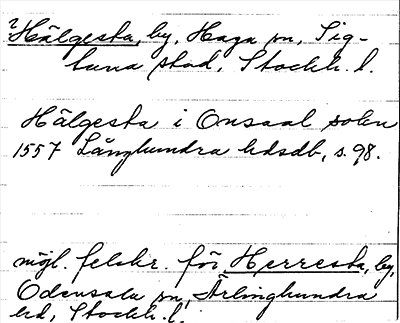 ? Hälgesta, by, Haga sn, Sig-
tuna stad, Stockh. l.
Hälgesta i Onsaal sokn
1557 Långhundra hdsdb, s. 98.
möjl. felskr. för Herresta, by,
Odensala sn, Ärlinghundra
hd, Stockh. l.